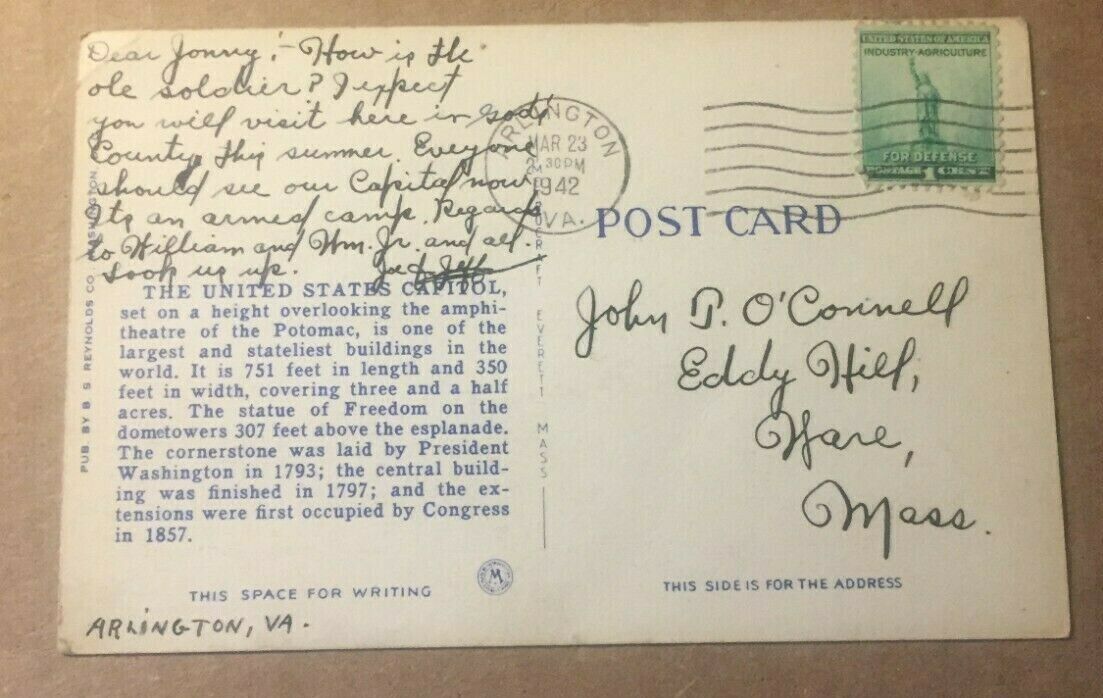 Dear Jonny:- How is the
ole soldier? I expect
you will visit here in God's
County this summer. Everyone
should see our Capital now,
Its an armed camp. Regards
to William and Wm. Jr. and all.
Look us up.
THE UNITED STATES CAPITOL,
set on a height overlooking the amphi-
theatre of the Potomac, is one of the
largest and stateliest buildings in the
world. It is 751 feet in length and 350
feet in width, covering three and a half
acres. The statue of Freedom on the
dometowers 307 feet above the esplanade.
The cornerstone was laid by President
Washington in 1793; the central build-
ing was finished in 1797; and the ex-
tensions were first occupied by Congress
in 1857.
THIS SPACE FOR WRITING
ARLINGTON, VA.
PUB. BY B S REYNOLDS CO. WASHINGTON
EVERETT MASS
ARLINGTON
MAR 23
2 30PM
1942
VA.
UNITED STATES OF AMERICA
INDUSTRY-AGRICULTURE
FOR DEFENSE
POSTAGE 1 CENT
POST CARD
John T. O'Connell
Eddy Hill,
Ware,
Mass.
THIS SIDE IS FOR THE ADDRESS